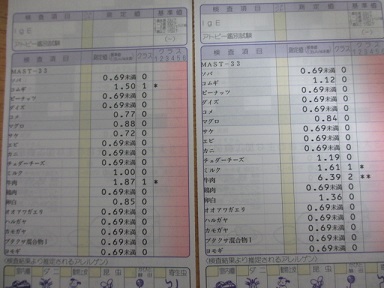 検査項目 測定値 基準値
IgE
アトピー鑑別試験
検査項目 測定値 クラス クラス
1 2 3 4 5 6
MAST-33
ソバ 0.69未満 0
コムギ 1.50 1 *
ピーナッツ 0.69未満 0
ダイズ 0.69未満 0
コメ 0.77 0
マグロ 0.88 0
サケ 0.72 0
エビ 0.69未満 0
カニ 0.69未満 0
チェダーチーズ 0.69未満 0
ミルク 1.00 0
牛肉 1.87 1 *
鶏肉 0.69未満 0
卵白 0.85 0
オオアワガエリ 0.69未満 0
カモガヤ 0.69未満 0
ブタクサ混合物1 0.69未満 0
ヨモギ 0.69未満 0
(検査結果より推定されるアレルゲン)
ダニ 昆虫 寄生虫
検査項目 測定値 基準値
IgE
アトピー鑑別試験
検査項目 測定値 クラス クラス
1 2 3 4 5 6
MAST-33
ソバ 0.69未満 0
コムギ 1.12 0
ピーナッツ 0.69未満 0
ダイズ 0.69未満 0
コメ 0.69未満 0
マグロ 0.84 0
サケ 0.69未満 0
エビ 0.69未満 0
カニ 0.69未満 0
チェダーチーズ 1.19 0
ミルク 1.61 1 *
牛肉 6.39 2 **
鶏肉 0.69未満 0
卵白 1.36 0
オオアワガエリ 0.69未満 0
カモガヤ 0.69未満 0
ブタクサ混合物1 0.69未満 0
ヨモギ 0.69未満 0
(検査結果より推定されるアレルゲン)
ダニ 昆虫